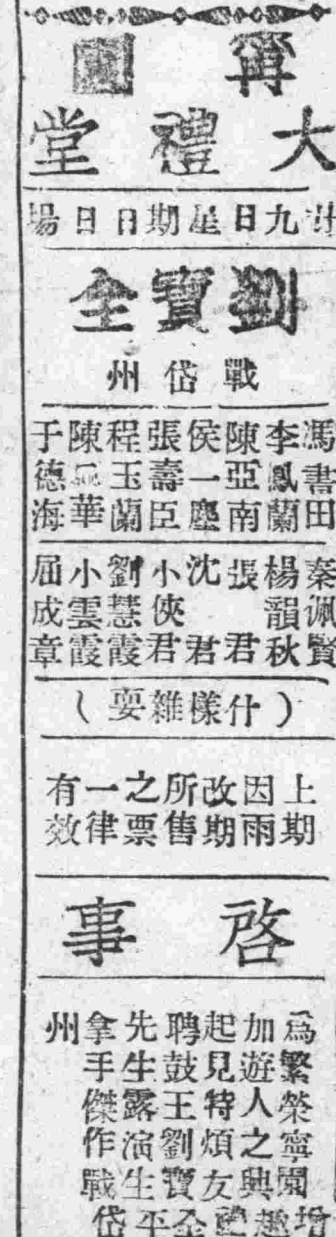 甯園
大禮堂
廿九日星期日日場
劉寶全
戰岱州
馮書田
李鳳蘭
陳亞南
侯一塵
張壽臣
程玉蘭
陳華
于德海
秦佩賢
楊韻秋
張君
沈君
小俠君
劉慧霞
小雲霞
屈成章
(什樣雜耍)
上期
因雨
改期
所售
之票
一律
有效
啓事
爲繁榮寧園增
加遊人之興趣
起見特煩友誼
聘鼓王劉寶全
先生露演生平
拿手傑作戰岱
州